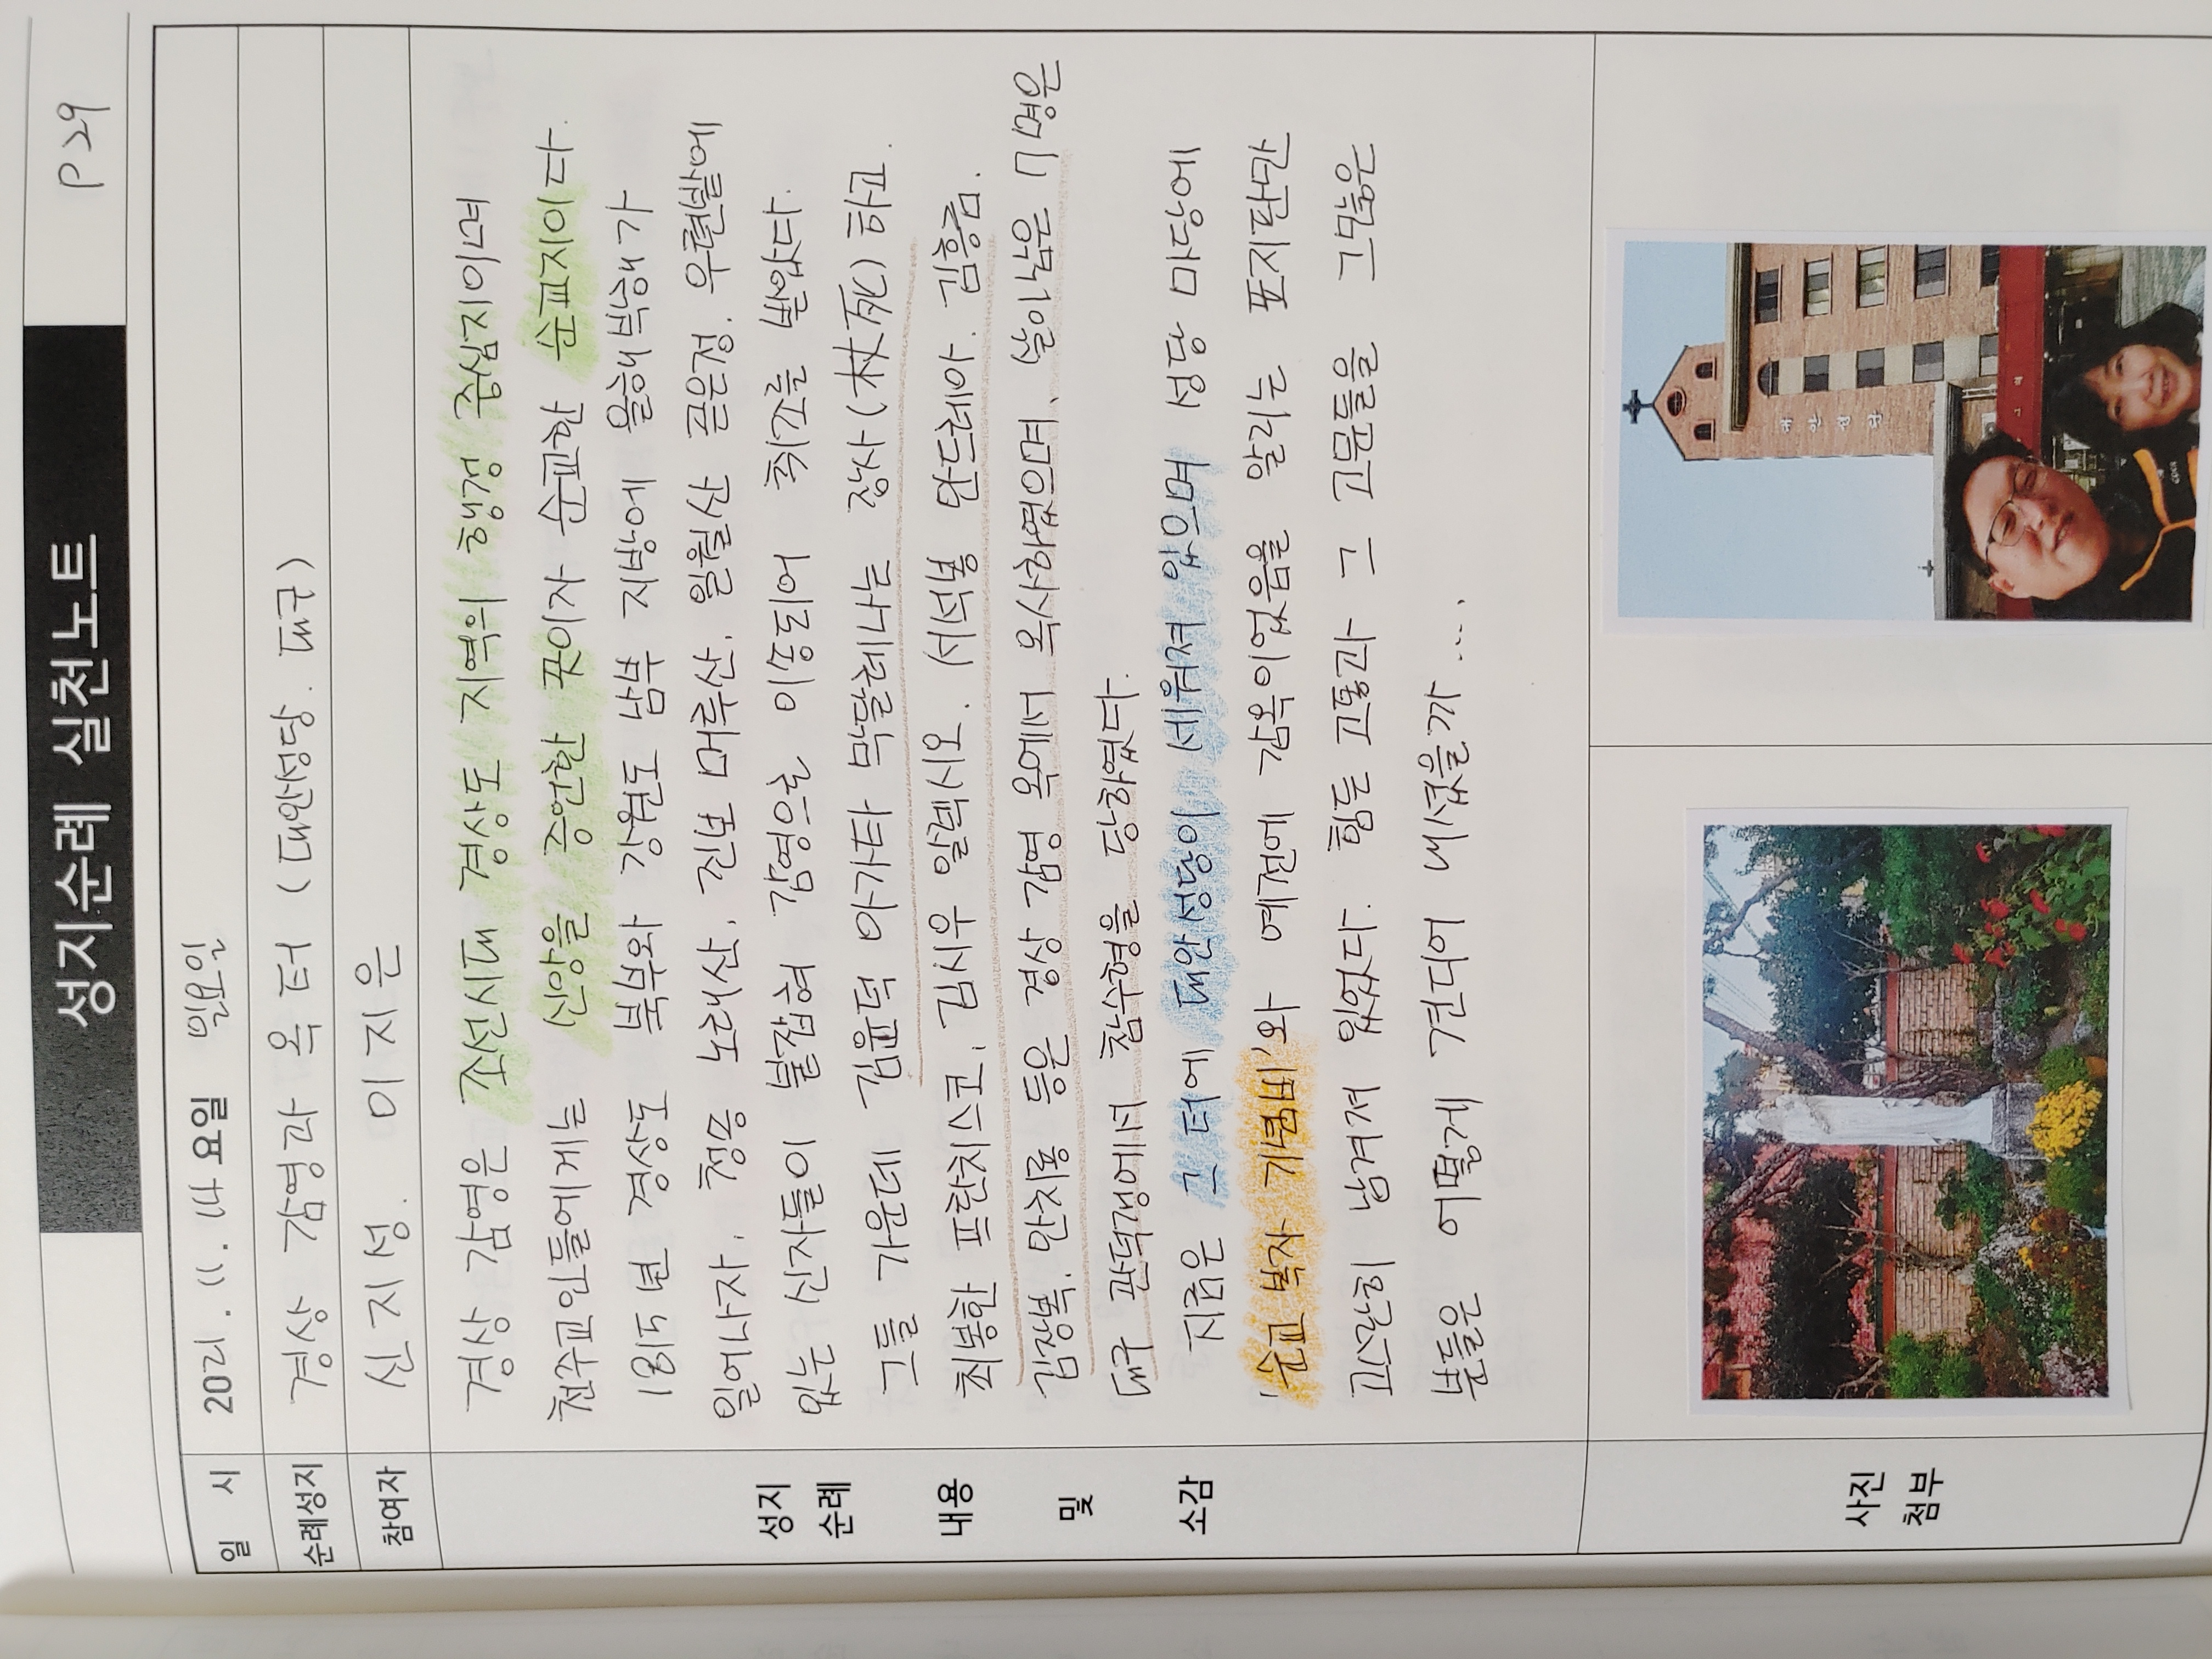 성지순례 실천노트
P 29
일 시
2021. 11. 14 요일 일요일
순례성지
경상 감영과 옥 터 (대안성당. 대구)
참여자
신지성. 이지은
성지
순례
내용
및
소감
경상 감영은 조선시대 경상도 지역의 행정 중심지이며
천주교인들에게는 신앙을 증언한 곳이자 순교한 순교지이다.
1815년 경상도 북부와 강원도 남부 지방에 을해박해가
일어나자, 청송 노래산, 진보 머루산, 일월산 곧은정, 우련밭에
있는 신자들이 붙잡혀 감영으로 이송되어 취조를 받았다.
그들 가운데 김윤덕 아가타 막달레나는 장사(杖死)하고.
최봉한 프란치스코, 김시우 알렉시오. 서석봉 안드레아. 김흥금.
김장복. 안치룡 등은 경상 감영 옥에서 옥사하였으며, 살아남은 7명은
대구 관덕정에서 참수형을 당하였다.
지금은 그 터에 대안성당이 세워져 있으며 성당 마당에
'순교 복자 기념비'와 예전에 감옥이었음을 알리는 표지판만
고스란히 남겨져 있었다. 힘든 고통과 그 고문들을 그많은
분들은 어떻게 견디어 내셨을까....
사진
첨부
대안성당